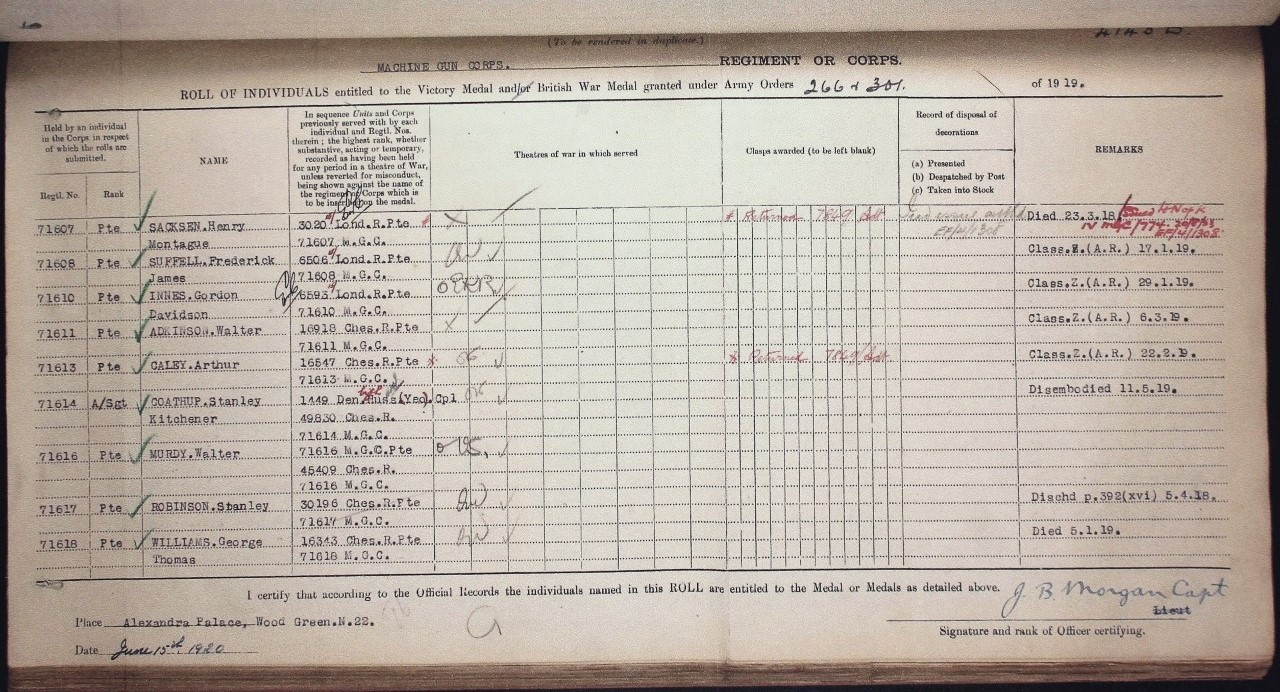 (To be rendered in duplicate.)
MACHINE GUN CORPS. REGIMENT OR CORPS.
ROLL OF INDIVIDUALS entitled to the Victory Medal and/or British War Medal granted under Army Orders 266 & 301. of 1919.
Held by an individual
in the Corps in respect
of which the rolls are
submitted.
Regtl. No.
Rank
NAME
In sequence Units and Corps
previously served with by each
individual and Regtl. Nos.
therein; the highest rank, whether
substantive, acting or temporary,
recorded as having been held
for any period in a theatre of War,
unless reverted for misconduct,
being shown against the name of
the regiment/Corps which is
to be inscribed on the medal.
Theatres of war in which served
Clasps awarded (to be left blank)
Record of disposal of
decorations
(a) Presented
(b) Despatched by Post
(c) Taken into Stock
REMARKS
71607 Pte SACKSEN.Henry 3020 Lond.R.Pte * Returned Died 23.3.18
Montague 71607 M.G.C.
71608 Pte SUFFELL.Frederick 6506 Lond.R.Pte Class.Z.(A.R.) 17.1.19.
James 71608 M.G.C.
71610 Pte INNES.Gordon 6593 Lond.R.Pte Class.Z.(A.R.) 29.1.19.
Davidson 71610 M.G.C.
71611 Pte ADKINSON.Walter 16918 Ches.R.Pte Class.Z.(A.R.) 6.3.19.
71611 M.G.C.
71613 Pte CALEY.Arthur 16547 Ches.R.Pte * Returned Class.Z.(A.R.) 22.2.19.
71613 M.G.C.
71614 A/Sgt COATHUP.Stanley 1449 Den.Huss(Yeo).Cpl Disembodied 11.5.19.
Kitchener 49830 Ches.R.
71614 M.G.C.
71616 Pte MURDY.Walter 71616 M.G.C.Pte
45409 Ches.R.
71616 M.G.C.
71617 Pte ROBINSON.Stanley 30196 Ches.R.Pte Dischd p.392(xvi) 5.4.18.
71617 M.G.C.
71618 Pte WILLIAMS.George 16343 Ches.R.Pte Died 5.1.19.
Thomas 71618 M.G.C.
I certify that according to the Official Records the individuals named in this ROLL are entitled to the Medal or Medals as detailed above.
J. B. Morgan Capt
Lieut
Place Alexandra Palace, Wood Green.N.22.
Signature and rank of Officer certifying.
Date June 15th 1920